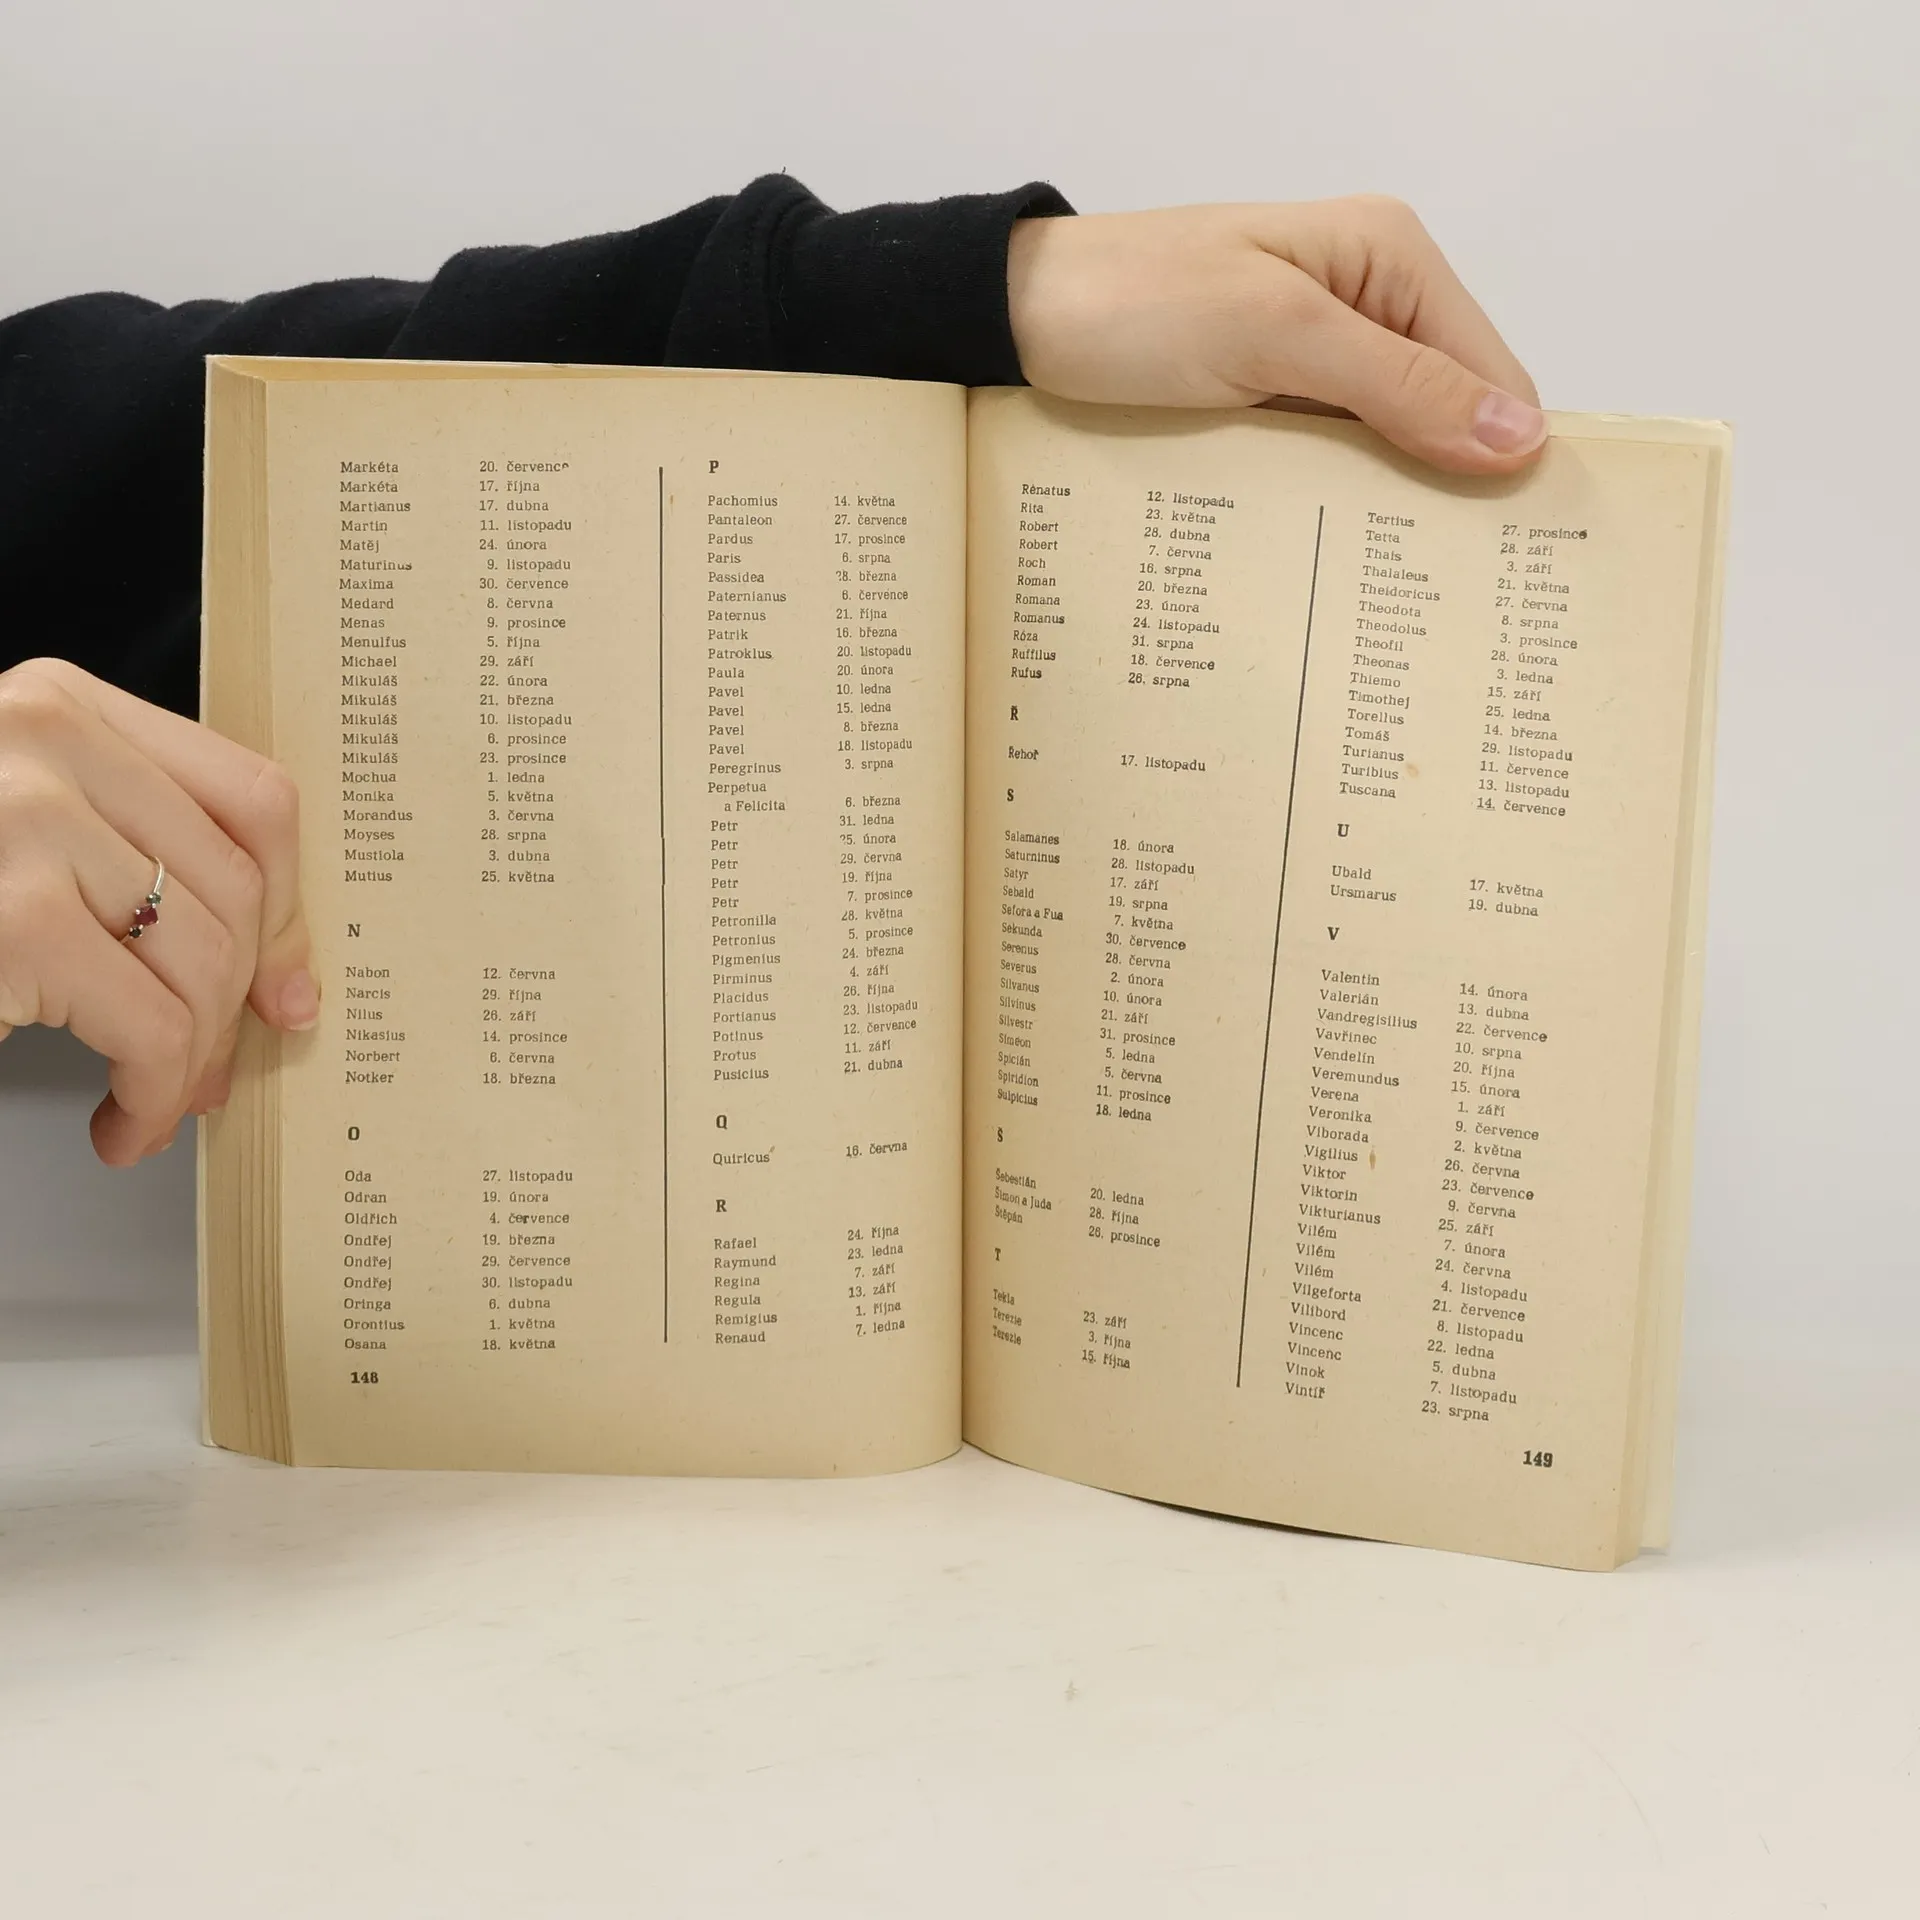 Markéta 20. července
Markéta 17. října
Martianus 17. dubna
Martin 11. listopadu
Matěj 24. února
Maturinus 9. listopadu
Maxima 30. července
Medard 8. června
Menas 9. prosince
Menulfus 5. října
Michael 29. září
Mikuláš 22. února
Mikuláš 21. března
Mikuláš 10. listopadu
Mikuláš 6. prosince
Mikuláš 23. prosince
Mochua 1. ledna
Monika 5. května
Morandus 3. června
Moyses 28. srpna
Mustiola 3. dubna
Mutius 25. května
N
Nabon 12. června
Narcis 29. října
Nilus 26. září
Nikasius 14. prosince
Norbert 6. června
Notker 18. března
O
Oda 27. listopadu
Odran 19. února
Oldřich 4. července
Ondřej 19. března
Ondřej 29. července
Ondřej 30. listopadu
Oringa 6. dubna
Orontius 1. května
Osana 18. května
148
P
Pachomius 14. května
Pantaleon 27. července
Pardus 17. prosince
Paris 6. srpna
Passidea 28. března
Paternianus 6. července
Paternus 21. října
Patrik 16. března
Patroklus 20. listopadu
Paula 20. února
Pavel 10. ledna
Pavel 15. ledna
Pavel 8. března
Pavel 18. listopadu
Peregrinus 3. srpna
Perpetua
a Felicita 6. března
Petr 31. ledna
Petr 25. února
Petr 29. června
Petr 19. října
Petr 7. prosince
Petronilla 28. května
Petronius 5. prosince
Pigmenius 24. března
Pirminus 4. září
Placidus 26. října
Portianus 23. listopadu
Potinus 12. července
Protus 11. září
Pusicius 21. dubna
Q
Quiricus 16. června
R
Rafael 24. října
Raymund 23. ledna
Regina 7. září
Regula 13. září
Remigius 1. října
Renaud 7. ledna
Renatus 12. listopadu
Rita 23. května
Robert 28. dubna
Robert 7. června
Roch 16. srpna
Roman 20. března
Romana 23. února
Romanus 24. listopadu
Róza 31. srpna
Ruffilus 18. července
Rufus 26. srpna
Ř
Řehoř 17. listopadu
S
Salamanes 18. února
Saturninus 28. listopadu
Satyr 17. září
Sebald 19. srpna
Sefora a Fua 7. května
Sekunda 30. července
Serenus 28. června
Severus 2. února
Silvanus 10. února
Silvinus 21. září
Silvestr 31. prosince
Simeon 5. ledna
Spicián 5. června
Spiridion 11. prosince
Sulpicius 18. ledna
Š
Šebestián 20. ledna
Šimon a Juda 28. října
Štěpán 26. prosince
T
Tekla 23. září
Terezie 3. října
Terezie 15. října
Tertius 27. prosince
Tetta 28. září
Thais 3. září
Thalaleus 21. května
Theidoricus 27. června
Theodota 8. srpna
Theodolus 3. prosince
Theofil 28. února
Theonas 3. ledna
Thiemo 15. září
Timothej 25. ledna
Torellus 14. března
Tomáš 29. listopadu
Turianus 11. července
Turibius 13. listopadu
Tuscana 14. července
U
Ubald 17. května
Ursmarus 19. dubna
V
Valentin 14. února
Valerián 13. dubna
Vandregisilius 22. července
Vavřinec 10. srpna
Vendelín 20. října
Veremundus 15. února
Verena 1. září
Veronika 9. července
Viborada 2. května
Vigilius 26. června
Viktor 23. července
Viktorin 9. června
Vikturianus 25. září
Vilém 7. února
Vilém 24. června
Vilém 4. listopadu
Vilgeforta 21. července
Vilibord 8. listopadu
Vincenc 22. ledna
Vincenc 5. dubna
Vinok 7. listopadu
Vintíř 23. srpna
149